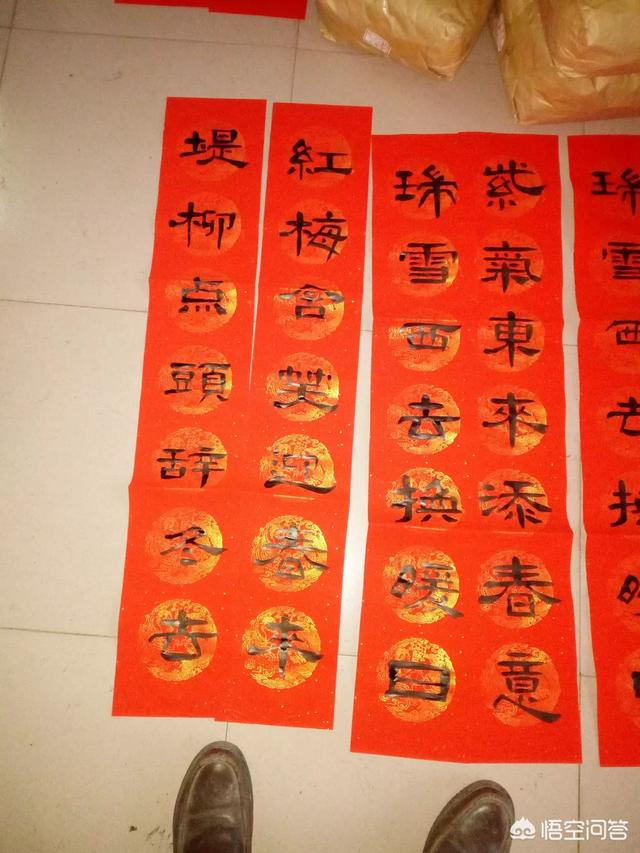 紫氣東來添春意
雪西去換暖日
紅梅含笑迎春来
堤柳点頭辞冬去
雪西去換
悟空问答